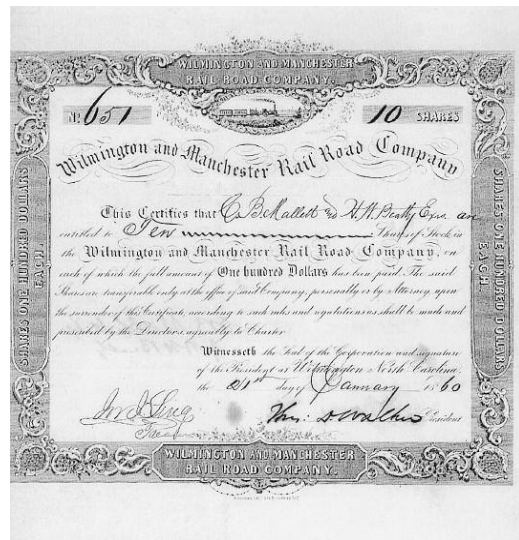 WILMINGTON AND MANCHESTER
RAIL ROAD COMPANY.
No. 651
10 SHARES
Wilmington and Manchester Rail Road Company
SHARES ONE HUNDRED DOLLARS
EACH.
SHARES ONE HUNDRED DOLLARS
EACH.
This Certifies that C. B. Mallett and H. W. Beatty Exrs are
entitled to Ten Shares of Stock in
the Wilmington and Manchester Rail Road Company, on
each of which the full amount of One hundred Dollars has been paid. The said
Shares are transferable only at the office of said Company, personally or by Attorney upon
the surrender of this Certificate, according to such rules and regulations as shall be made and
prescribed by the Directors, agreeably to Charter
Witnesseth the Seal of the Corporation and signature
of the President at Wilmington North Carolina,
the 21st day of January 1860
President
WILMINGTON AND MANCHESTER
RAIL ROAD COMPANY.